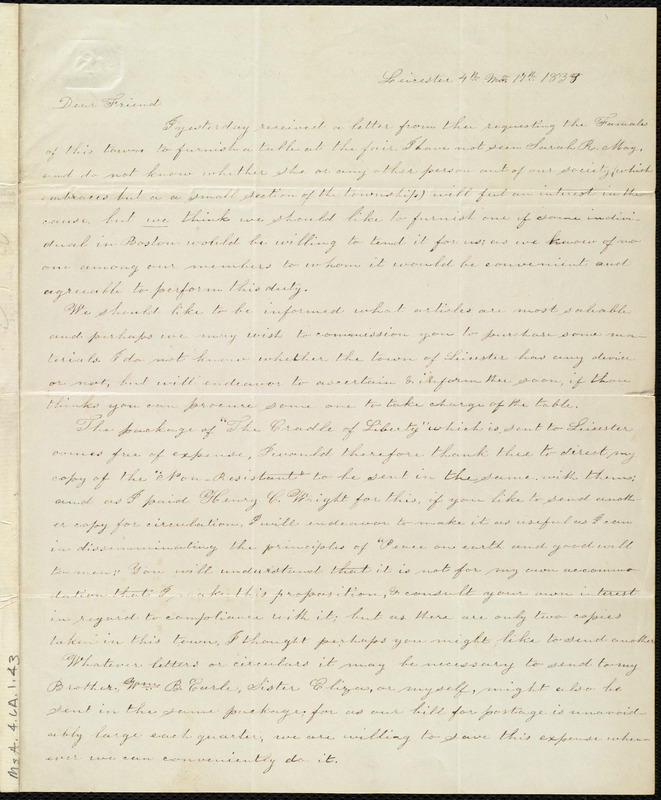 Leicester 4th Mo. 17th 1839
Dear Friend
I yesterday received a letter from thee requesting the Females
of this town to furnish a table at the fair. I have not seen Sarah R. May,
and do not know whether she or any other person out of our society, (which
embraces but a a small section of the township) will feel an interest in the
cause, but we think we should like to furnish one if some indivi-
dual in Boston would be willing to tend it for us; as we know of no
one among our members to whom it would be convenient and
agreeable to perform this duty.
We should like to be informed what articles are most saleable
and perhaps we may wish to commission you to purchase some ma-
terials. I do not know whether the town of Leicester has any device
or not, but will endeavor to ascertain & inform thee soon, if thou
thinks you can procure some one to take charge of the table.
The package of "The Cradle of Liberty" which is sent to Leicester
comes free of expense, I would therefore thank thee to direct my
copy of the "Non-Resistant" to be sent in the same, with them;
and as I paid Henry C. Wright for this, if you like to send anoth-
er copy for circulation, I will endeavor to make it as useful as I can
in dissimminating the principles of "Peace on earth and good will
to men;" You will understand that it is not for my own accommo-
dation that I make this proposition, & consult your own interest
in regard to compliance with it; but as there are only two copies
taken in this town, I thought perhaps you might like to send another
Whatever letters or circulars it may be necessary to send to my
Brother, Wm. B. Earle, Sister Eliza, or myself, might also be
sent in the same package; for as our bill for postage is unavoid-
ably large each quarter, we are willing to save this expense when-
ever we can conveniently do it.
Ms A. 4.6A.1.43